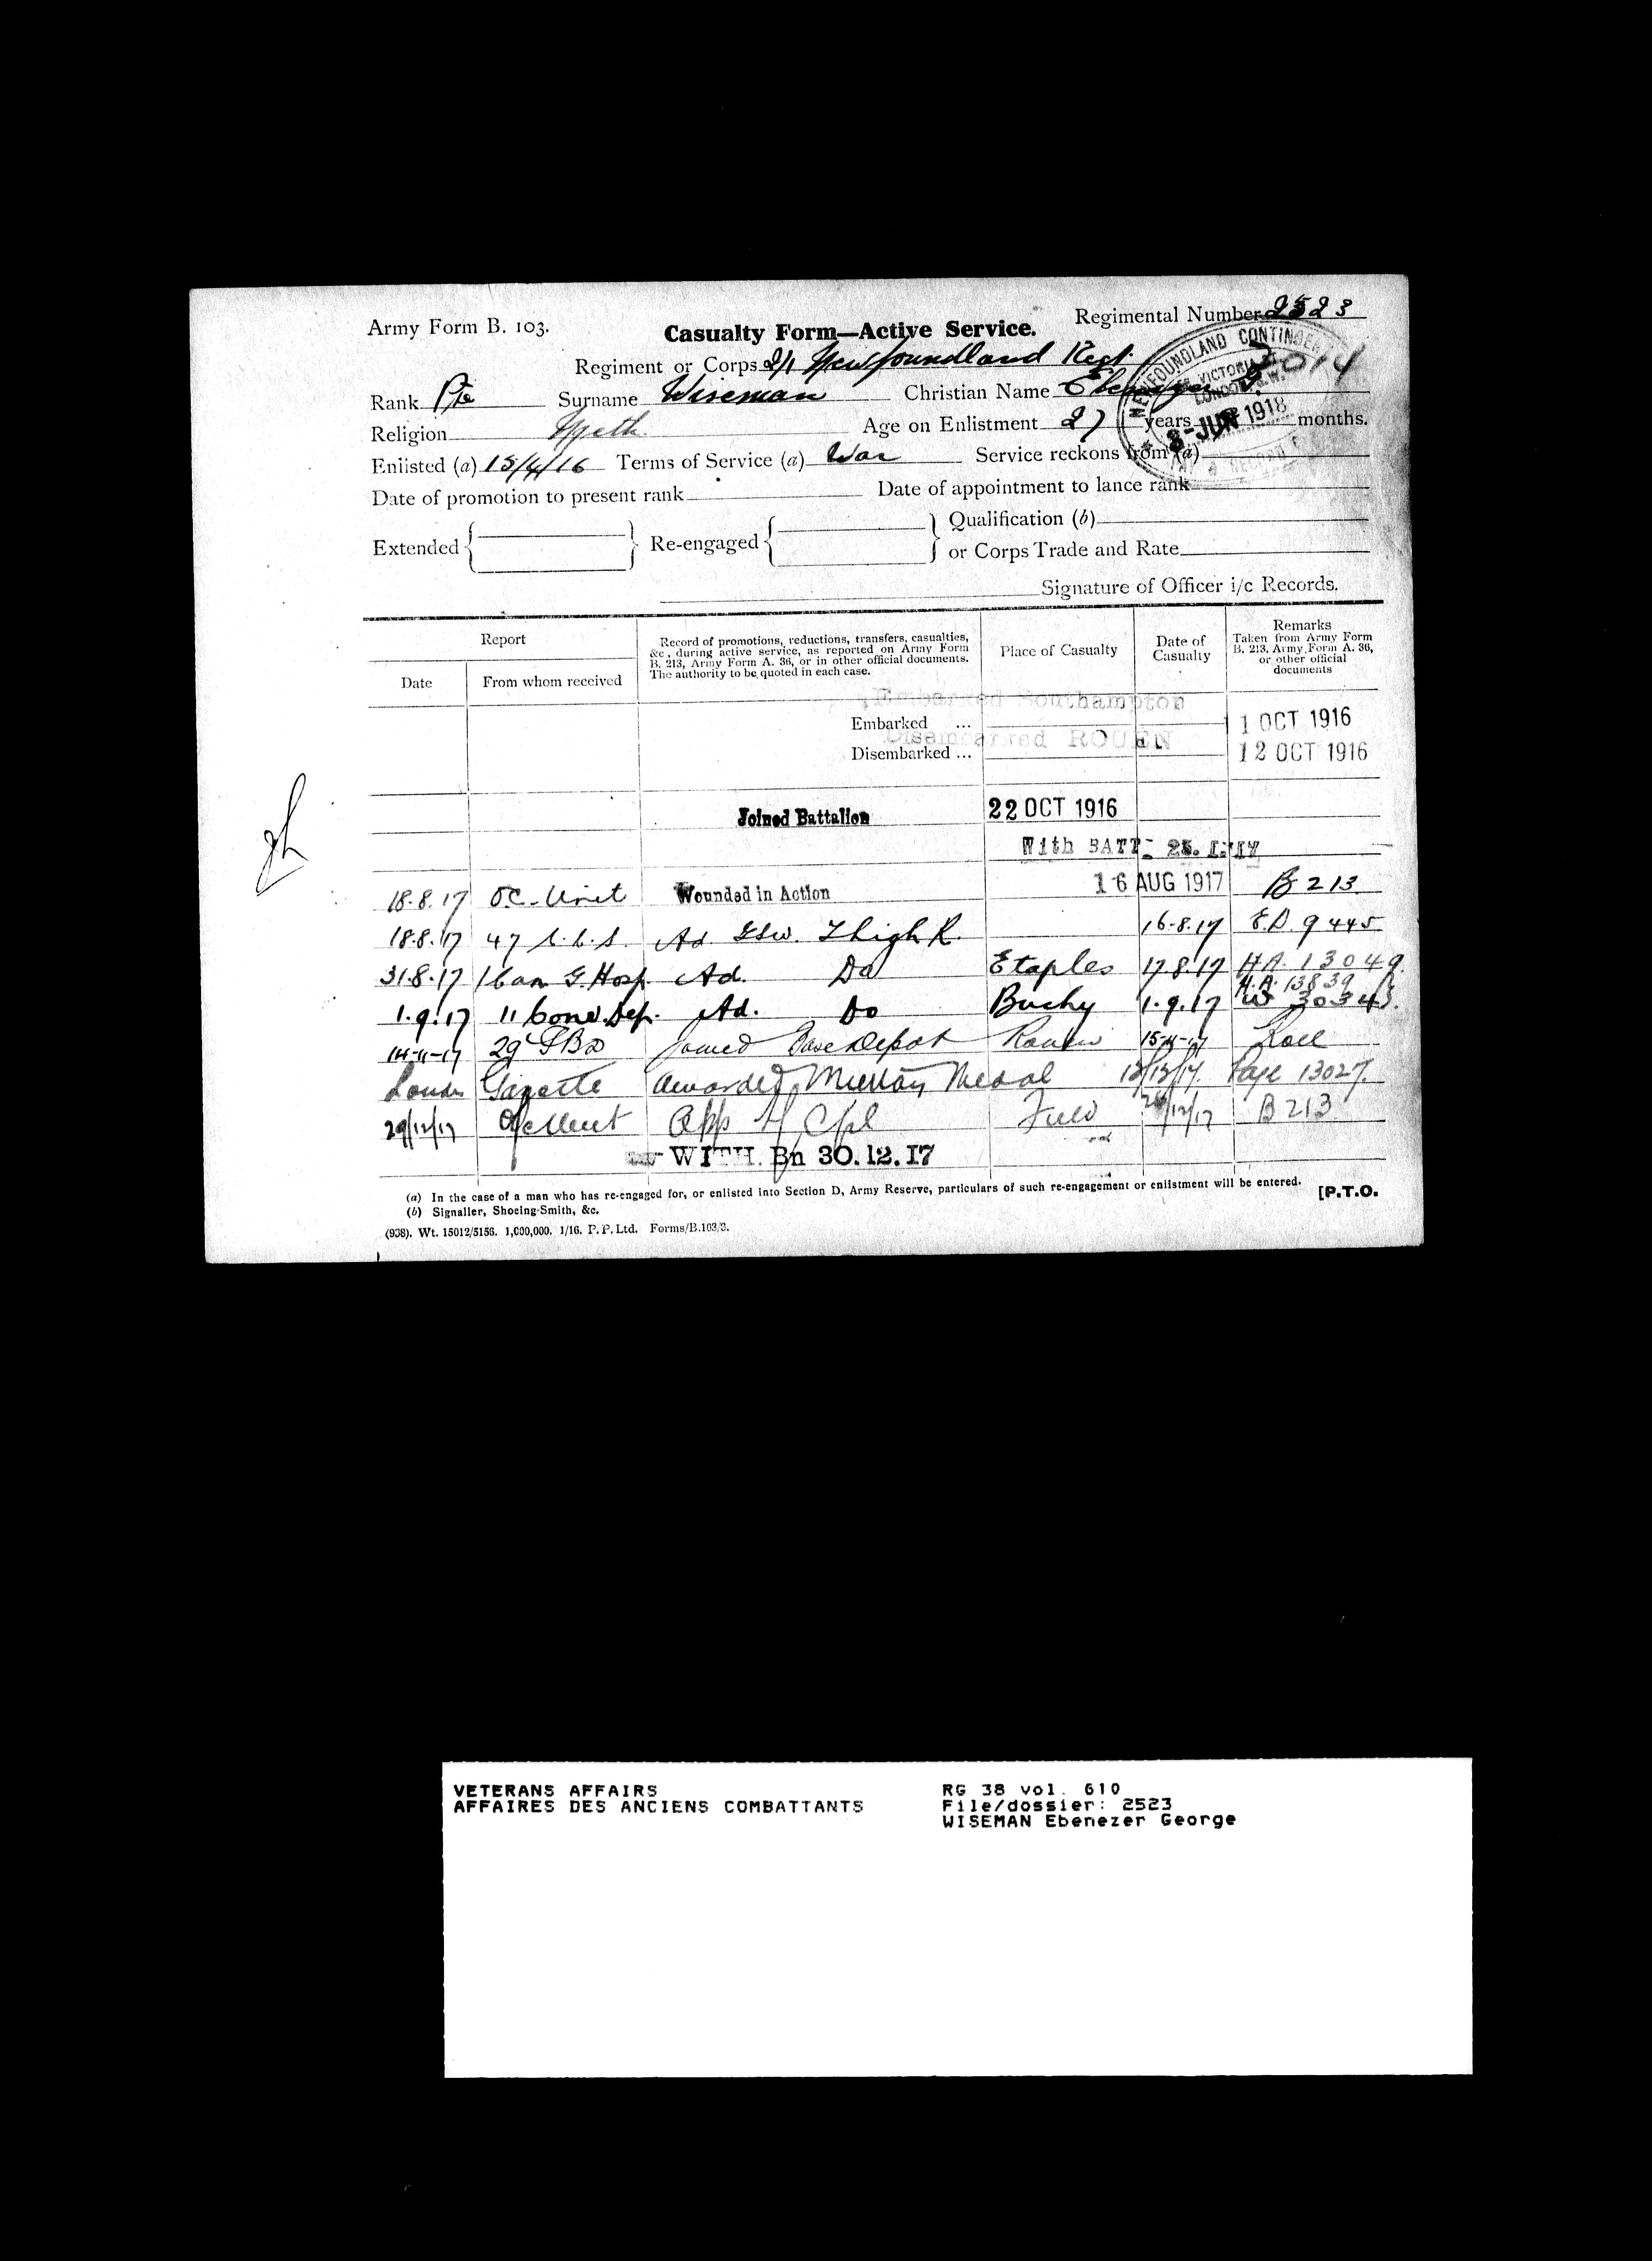 Army Form B. 103.
Casualty Form—Active Service.
Regimental Number 2523
Regiment or Corps 2/1 Newfoundland Regt.
3014
NEWFOUNDLAND CONTINGENT
VICTORIA ST
LONDON, S.W.
8-JUN 1918
Rank Pte Surname Wiseman Christian Name Ebenezer G.
Religion Meth. Age on Enlistment 27 years months.
Enlisted (a) 15/4/16 Terms of Service (a) War Service reckons from (a)
Date of promotion to present rank Date of appointment to lance rank
Extended Re-engaged Qualification (b)
or Corps Trade and Rate
Signature of Officer i/c Records.
Report
Date From whom received
Record of promotions, reductions, transfers, casualties, &c., during active service, as reported on Army Form B. 213, Army Form A. 36, or in other official documents. The authority to be quoted in each case.
Place of Casualty
Date of Casualty
Remarks
Taken from Army Form B. 213, Army Form A. 36, or other official documents
Embarked Southampton
Embarked ... 1 OCT 1916
Disembarked ROUEN
Disembarked ... 12 OCT 1916
Joined Battalion 22 OCT 1916
With BATT
18.8.17 O.C. Unit Wounded in Action 16 AUG 1917 B 213
18.8.17 47 C.C.S. Ad GSW. Thigh R. 16.8.17 E.D. 9445
31.8.17 1 Can G. Hosp. Ad. Do Etaples 17.8.17 H.A. 13049.
H.A. 13839
1.9.17 11 Conv. Dep. Ad. Do Buchy 1.9.17 W 3034
14-11-17 29 I.B.D Joined Base Depot Rouen 15-11-17 Roll
London Gazette Awarded Military Medal Page 13027.
29/12/17 App Cpl Field B 213
WITH. Bn 30.12.17
(a) In the case of a man who has re-engaged for, or enlisted into Section D, Army Reserve, particulars of such re-engagement or enlistment will be entered.
(b) Signaller, Shoeing-Smith, &c.
[P.T.O.
(938). Wt. 15012/5156. 1,000,000. 1/16. P.P. Ltd. Forms/B.103/3.
VETERANS AFFAIRS
AFFAIRES DES ANCIENS COMBATTANTS
RG 38 vol. 610
File/dossier: 2523
WISEMAN Ebenezer George